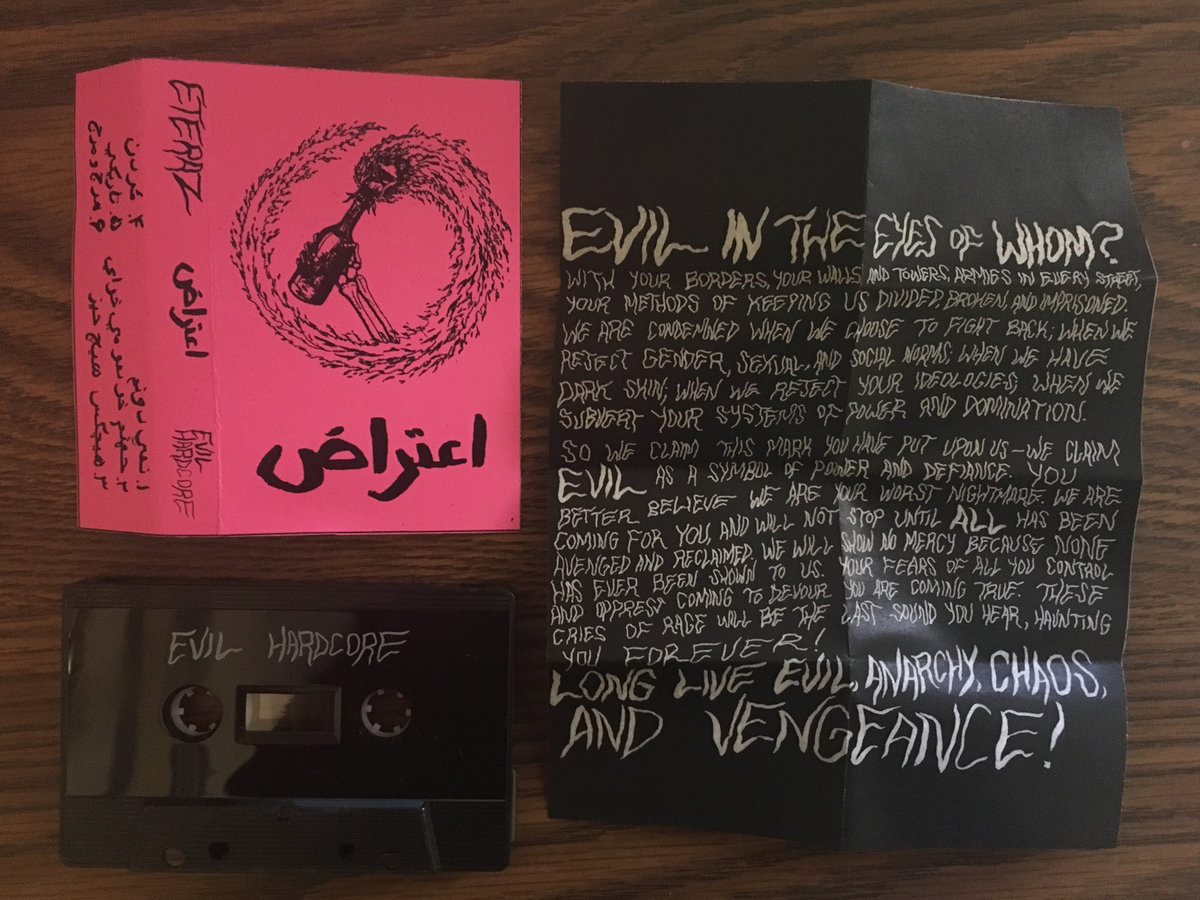 ETERAZ
اعتراض
EVIL
HARDCORE
اعتراض
EVIL HARDCORE
EVIL IN THE EYES OF WHOM?
WITH YOUR BORDERS, YOUR WALLS AND TOWERS, ARMIES IN EVERY STREET,
YOUR METHODS OF KEEPING US DIVIDED, BROKEN, AND IMPRISONED.
WE ARE CONDEMNED WHEN WE CHOOSE TO FIGHT BACK; WHEN WE
REJECT GENDER, SEXUAL, AND SOCIAL NORMS; WHEN WE HAVE
DARK SKIN; WHEN WE REJECT YOUR IDEOLOGIES; WHEN WE
SUBVERT YOUR SYSTEMS OF POWER AND DOMINATION.
SO WE CLAIM THIS MARK YOU HAVE PUT UPON US – WE CLAIM
EVIL AS A SYMBOL OF POWER AND DEFIANCE. YOU
BETTER BELIEVE WE ARE YOUR WORST NIGHTMARE. WE ARE
COMING FOR YOU, AND WILL NOT STOP UNTIL ALL HAS BEEN
AVENGED AND RECLAIMED. WE WILL SHOW NO MERCY BECAUSE NONE
HAS EVER BEEN SHOWN TO US. YOUR FEARS OF ALL YOU CONTROL
AND OPPRESS COMING TO DEVOUR YOU ARE COMING TRUE. THESE
CRIES OF RAGE WILL BE THE LAST SOUND YOU HEAR, HAUNTING
YOU FOREVER!
LONG LIVE EVIL, ANARCHY, CHAOS,
AND VENGEANCE!